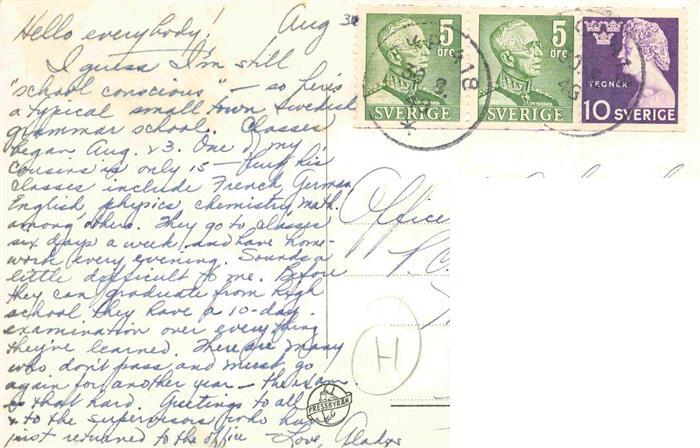 Hello everybody! Aug 30
I guess I'm still
"school conscious" – so here's
a typical small town Swedish
grammar school. Classes
began Aug. 23. One of my
cousins is only 15 – but his
classes include French, German
English physics chemistry, math.
among others. They go to classes
six days a week and have home-
work every evening. Sounds a
little difficult to me. Before
they can graduate from high
school they have a 10-day
examination over everything
they've learned. There are many
who don't pass and must go
again for another year – the exam
is that hard. Greetings to all
& to the supervisors who have
just returned to the office – Love, Gladys
5
ÖRE
SVERIGE
5
ÖRE
SVERIGE
TEGNÉR
10 SVERIGE
Office
H
PRESSBYRÅN